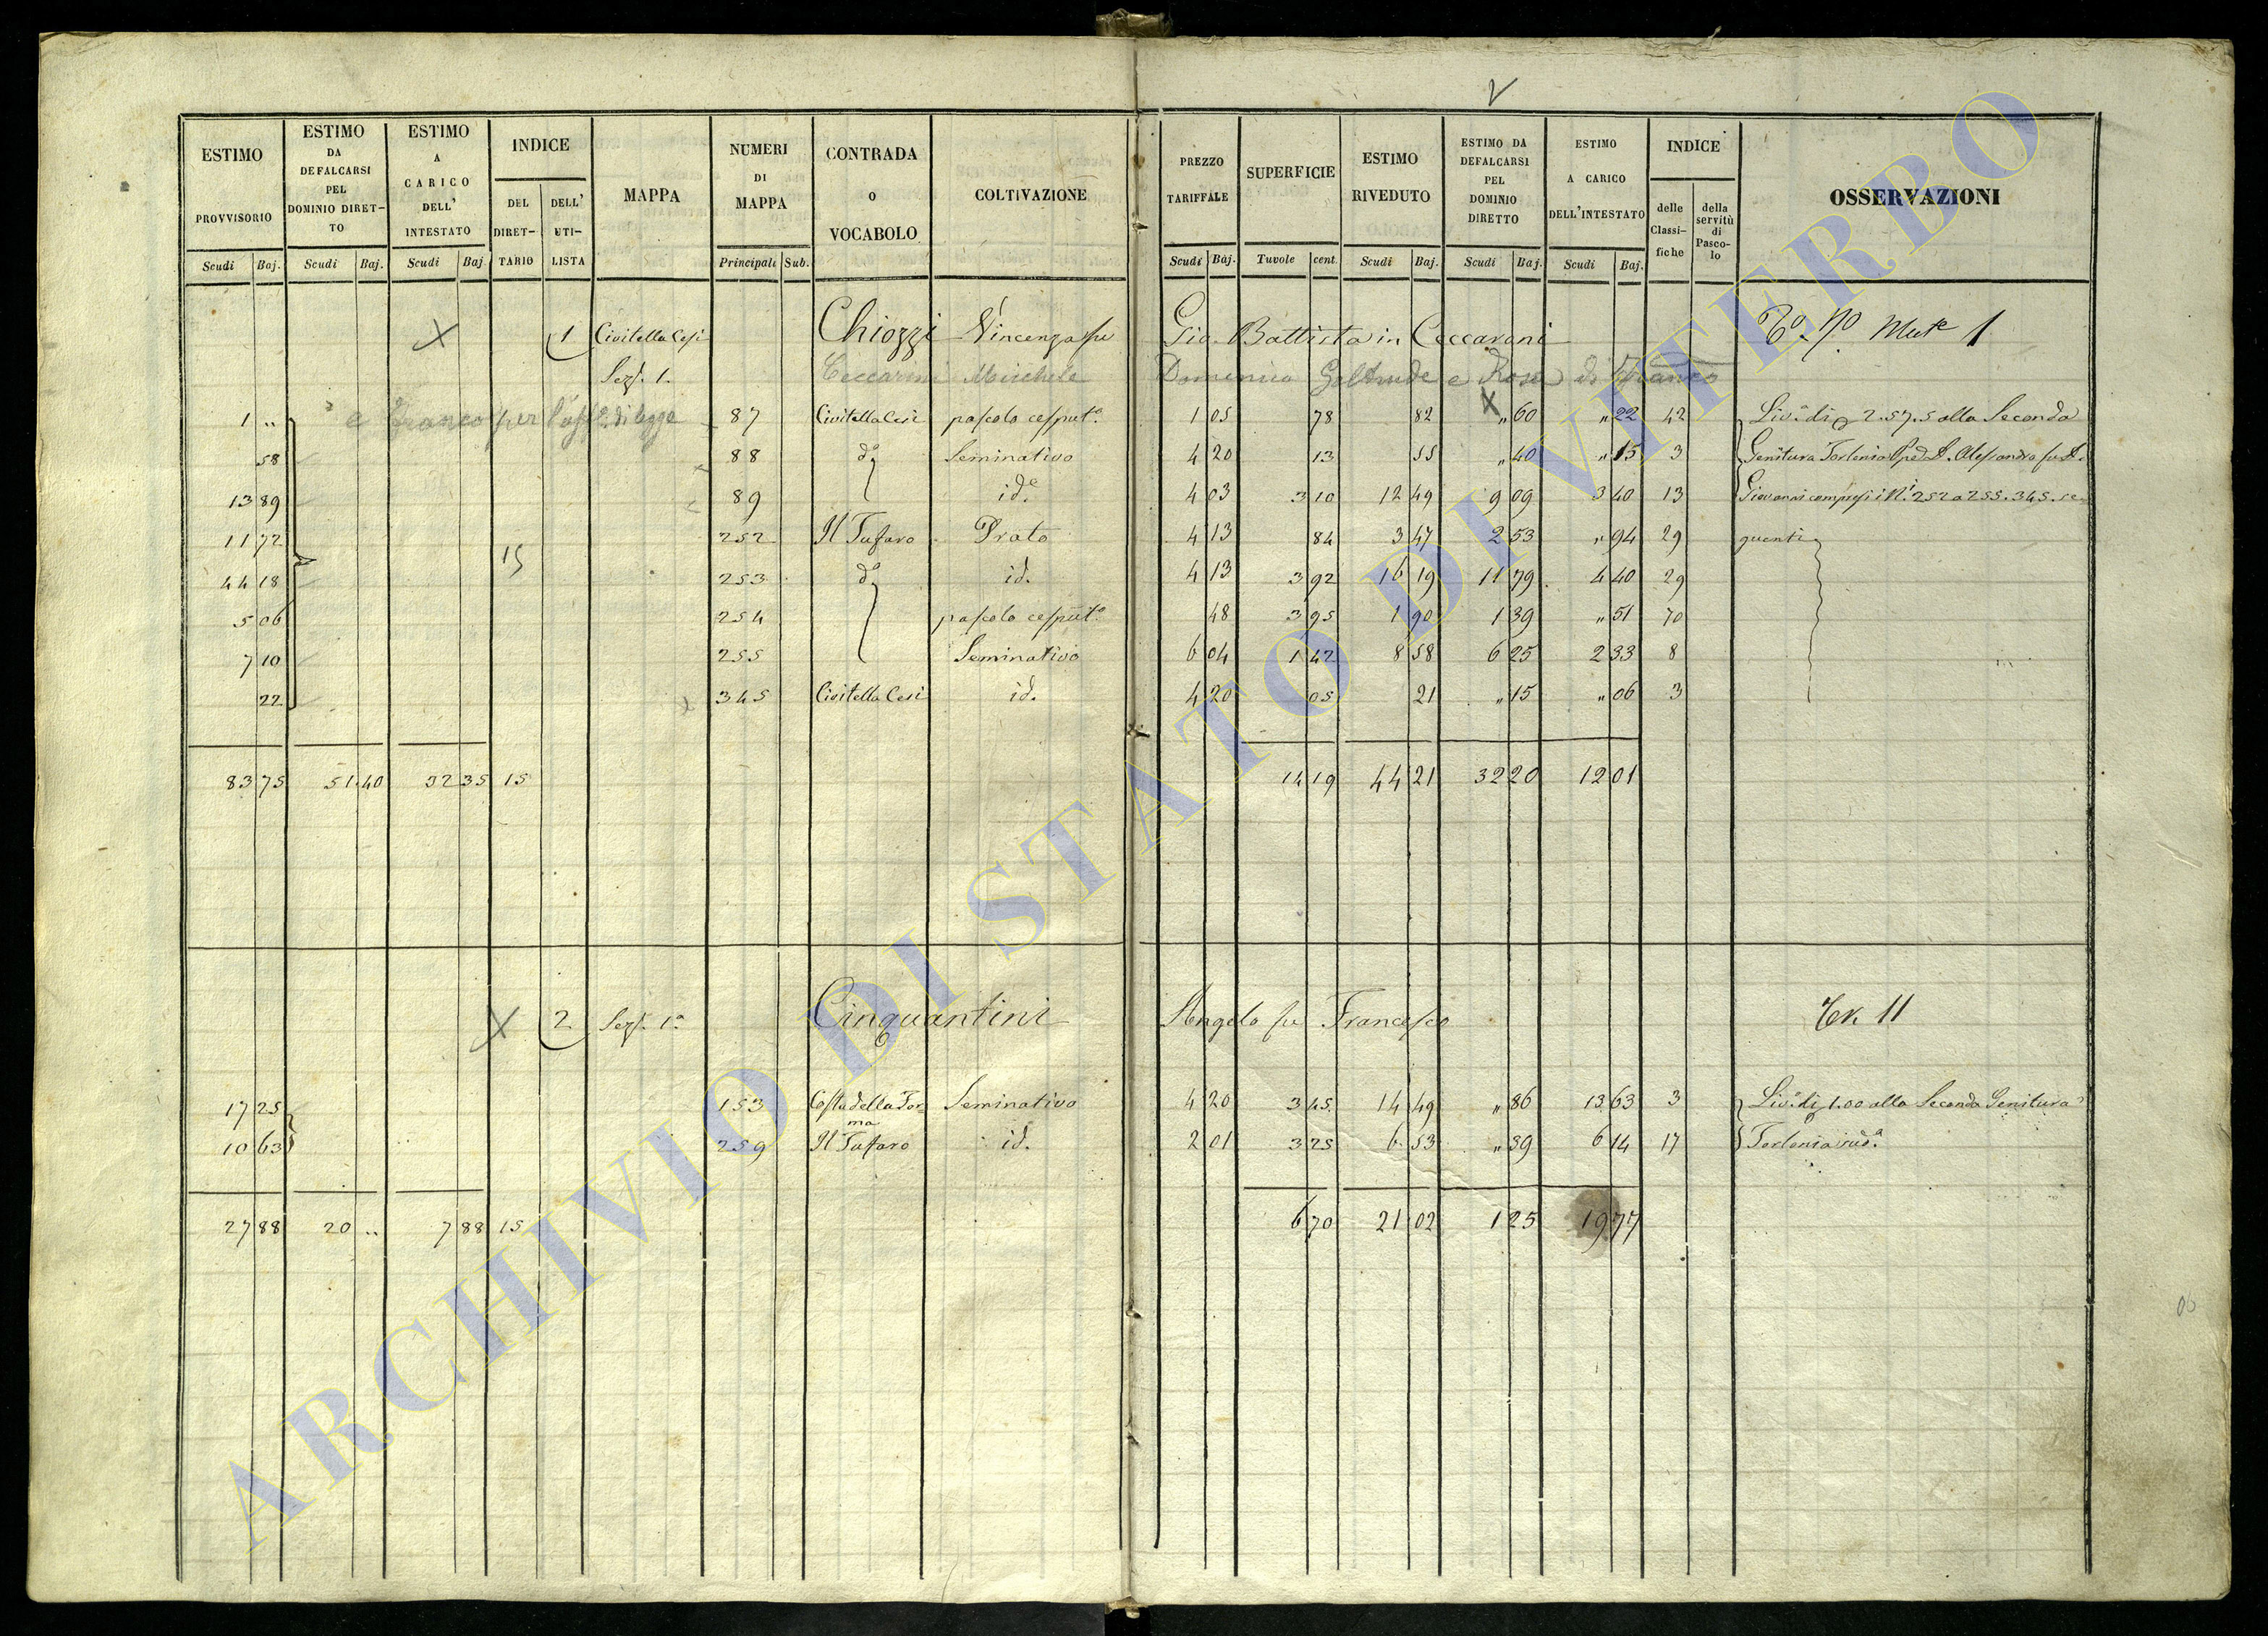 2
ESTIMO PROVVISORIO | ESTIMO DA DEFALCARSI PEL DOMINIO DIRET-TO | ESTIMO A CARICO DELL' INTESTATO | INDICE | MAPPA | NUMERI DI MAPPA | CONTRADA O VOCABOLO | COLTIVAZIONE | PREZZO TARIFFALE | SUPERFICIE | ESTIMO RIVEDUTO | ESTIMO DA DEFALCARSI PEL DOMINIO DIRETTO | ESTIMO A CARICO DELL'INTESTATO | INDICE | OSSERVAZIONI
DEL DIRET-TARIO | DELL' UTI-LISTA | delle Classi-fiche | della servitù di Pasco-lo
Scudi | Baj. | Scudi | Baj. | Scudi | Baj | Principale | Sub. | Scudi | Baj. | Tuvole | cent. | Scudi | Baj. | Scudi | Baj. | Scudi | Baj.
1 Civitella Cesi Chiozzi Vincenza fu Gio. Battista in Ceccaroni 1
Sez. 1. Ceccarini Michele Domenico Geltrude e Rosa di Franco
1 .. e Franco per l' di legge 87 Civitella Cesi pascolo cesput.o 1 05 78 82 " 60 " 22 42 Liv.o di 2.57.5 alla Seconda
58 88 d.o Seminativo 4 20 13 55 " 40 " 15 3 Genitura Torlonia Alessandro fu
13 89 89 id.e 4 03 3 10 12 49 9 09 3 40 13 Giovanni compresi i N.i 252 a 255. 345. se
11 72 252 Il Tufaro Prato 4 13 84 3 47 2 53 " 94 29 guenti
44 18 15 253 d.o id. 4 13 3 92 16 19 11 79 4 40 29
5 06 254 pascolo cesput.o 48 3 95 1 90 1 39 " 51 70
7 10 255 Seminativo 6 04 1 42 8 58 6 25 2 33 8
22 345 Civitella Cesi id. 4 20 05 21 " 15 " 06 3
83 75 51.40 32 35 15 14 19 44 21 32 20 12 01
2 Sez. 1.a Cinquantini Angelo fu Francesco 11
17 25 153 Costa della For-ma Seminativo 4 20 3 45 14 49 " 86 13 63 3 Liv.o di 1.00 alla Seconda Genitura
10 63 259 Il Tufaro id. 2 01 3 25 6 53 " 39 6 14 17 Torlonia sud.a
27 88 20 .. 7 88 15 6 70 21 02 1 25 19 77
ARCHIVIO DI STATO DI VITERBO